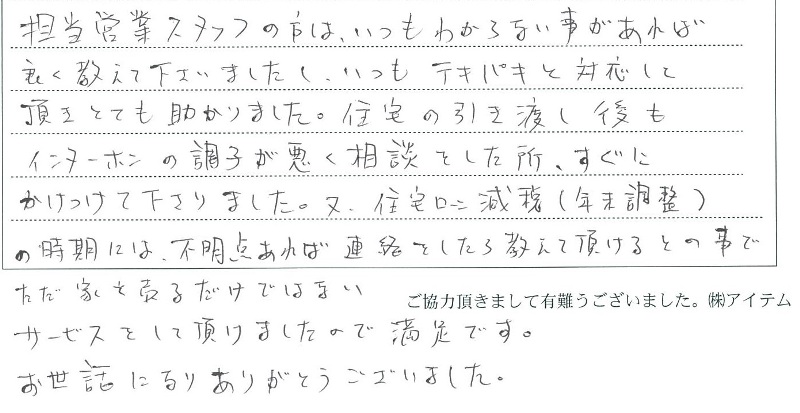 担当営業スタッフの方は、いつもわからない事があれば
良く教えて下さいましたし、いつもテキパキと対応して
頂きとても助かりました。住宅の引き渡し後も
インターホンの調子が悪く相談をした所、すぐに
かけつけて下さりました。又、住宅ローン減税(年末調整)
の時期には、不明点あれば連絡をしたら教えて頂けるとの事で
ただ家を売るだけではない
ご協力頂きまして有難うございました。㈱アイテム
サービスをして頂けましたので満足です。
お世話になりありがとうございました。